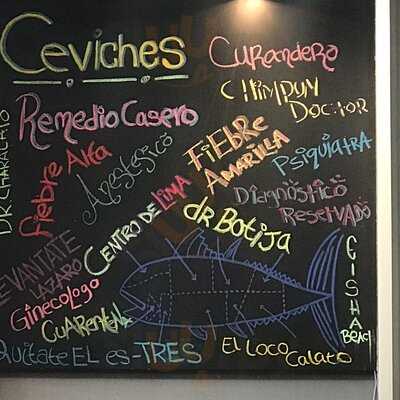 Ceviches
Curandero
CHIMPUM
DOCTOR
Remedio Casero
FIEBRE
AMARILLA
PSIQUIATRA
Fiebre Alta
Anestesico
DR CHARALATO
Diagnostico
RESERVADO
CENTRO DE LIMA
dR BOTIJA
LEVANTATE
LAZARO
Ginecologo
CUARENTENA
Quitate EL es-TRES
EL LOCO
CALATO